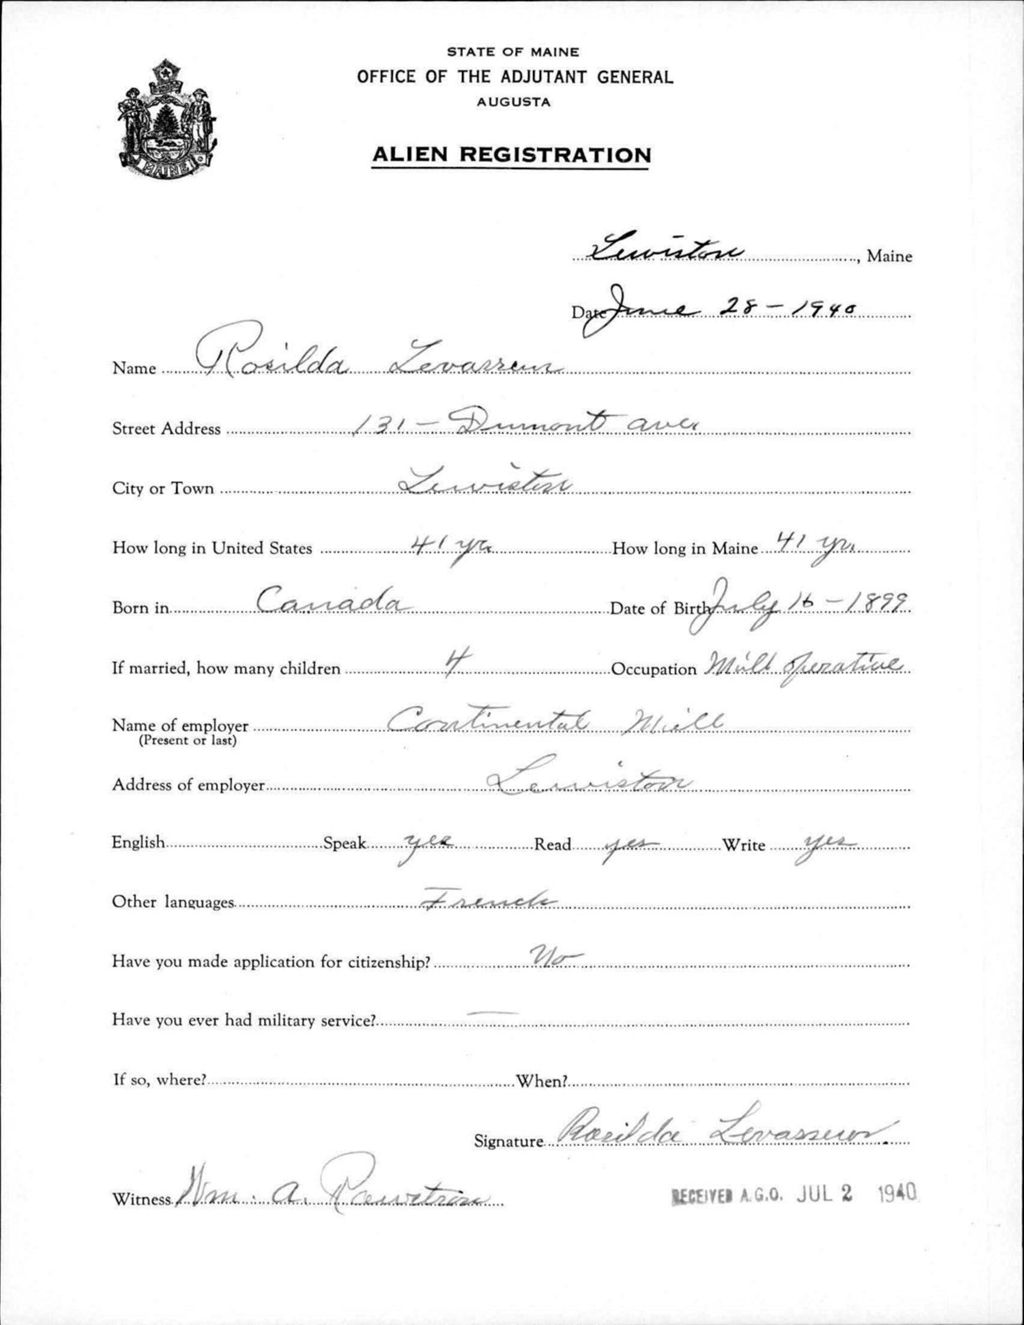 STATE OF MAINE
OFFICE OF THE ADJUTANT GENERAL
AUGUSTA
ALIEN REGISTRATION
MAINE
Lewiston, Maine
Date June 28 - 1940
Name Rosilda Levasseur
Street Address 131 - Dumont ave.
City or Town Lewiston
How long in United States 41 yrs How long in Maine 41 yrs.
Born in Canada Date of Birth July 16 - 1899
If married, how many children 4 Occupation Mill Operative
Name of employer Continental Mill
(Present or last)
Address of employer Lewiston
English Speak yes Read yes Write yes
Other languages French
Have you made application for citizenship? No
Have you ever had military service? —
If so, where? When?
Signature Rosilda Levasseur
Witness Wm. A. RECEIVED A.G.O. JUL 2 1940